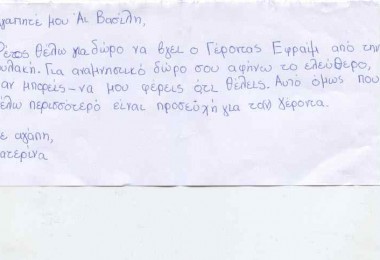 γαπητέ μου Άι Βασίλη,
έτος θέλω για δώρο να βγει ο Γέροντας Εφραίμ από την
υλακή. Για αναμνηστικό δώρο σου αφήνω το ελεύθερο,
αν μπορείς - να μου φέρεις ότι θέλεις. Αυτό όμως που
έλω περισσοτερό είναι προσευχή για τον γέροντα.
ε αγάπη,
ατερίνα